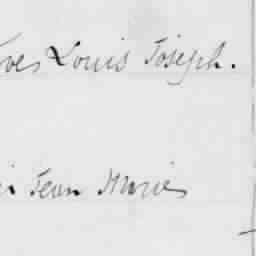 Yves Louis Joseph.
Jean Marie